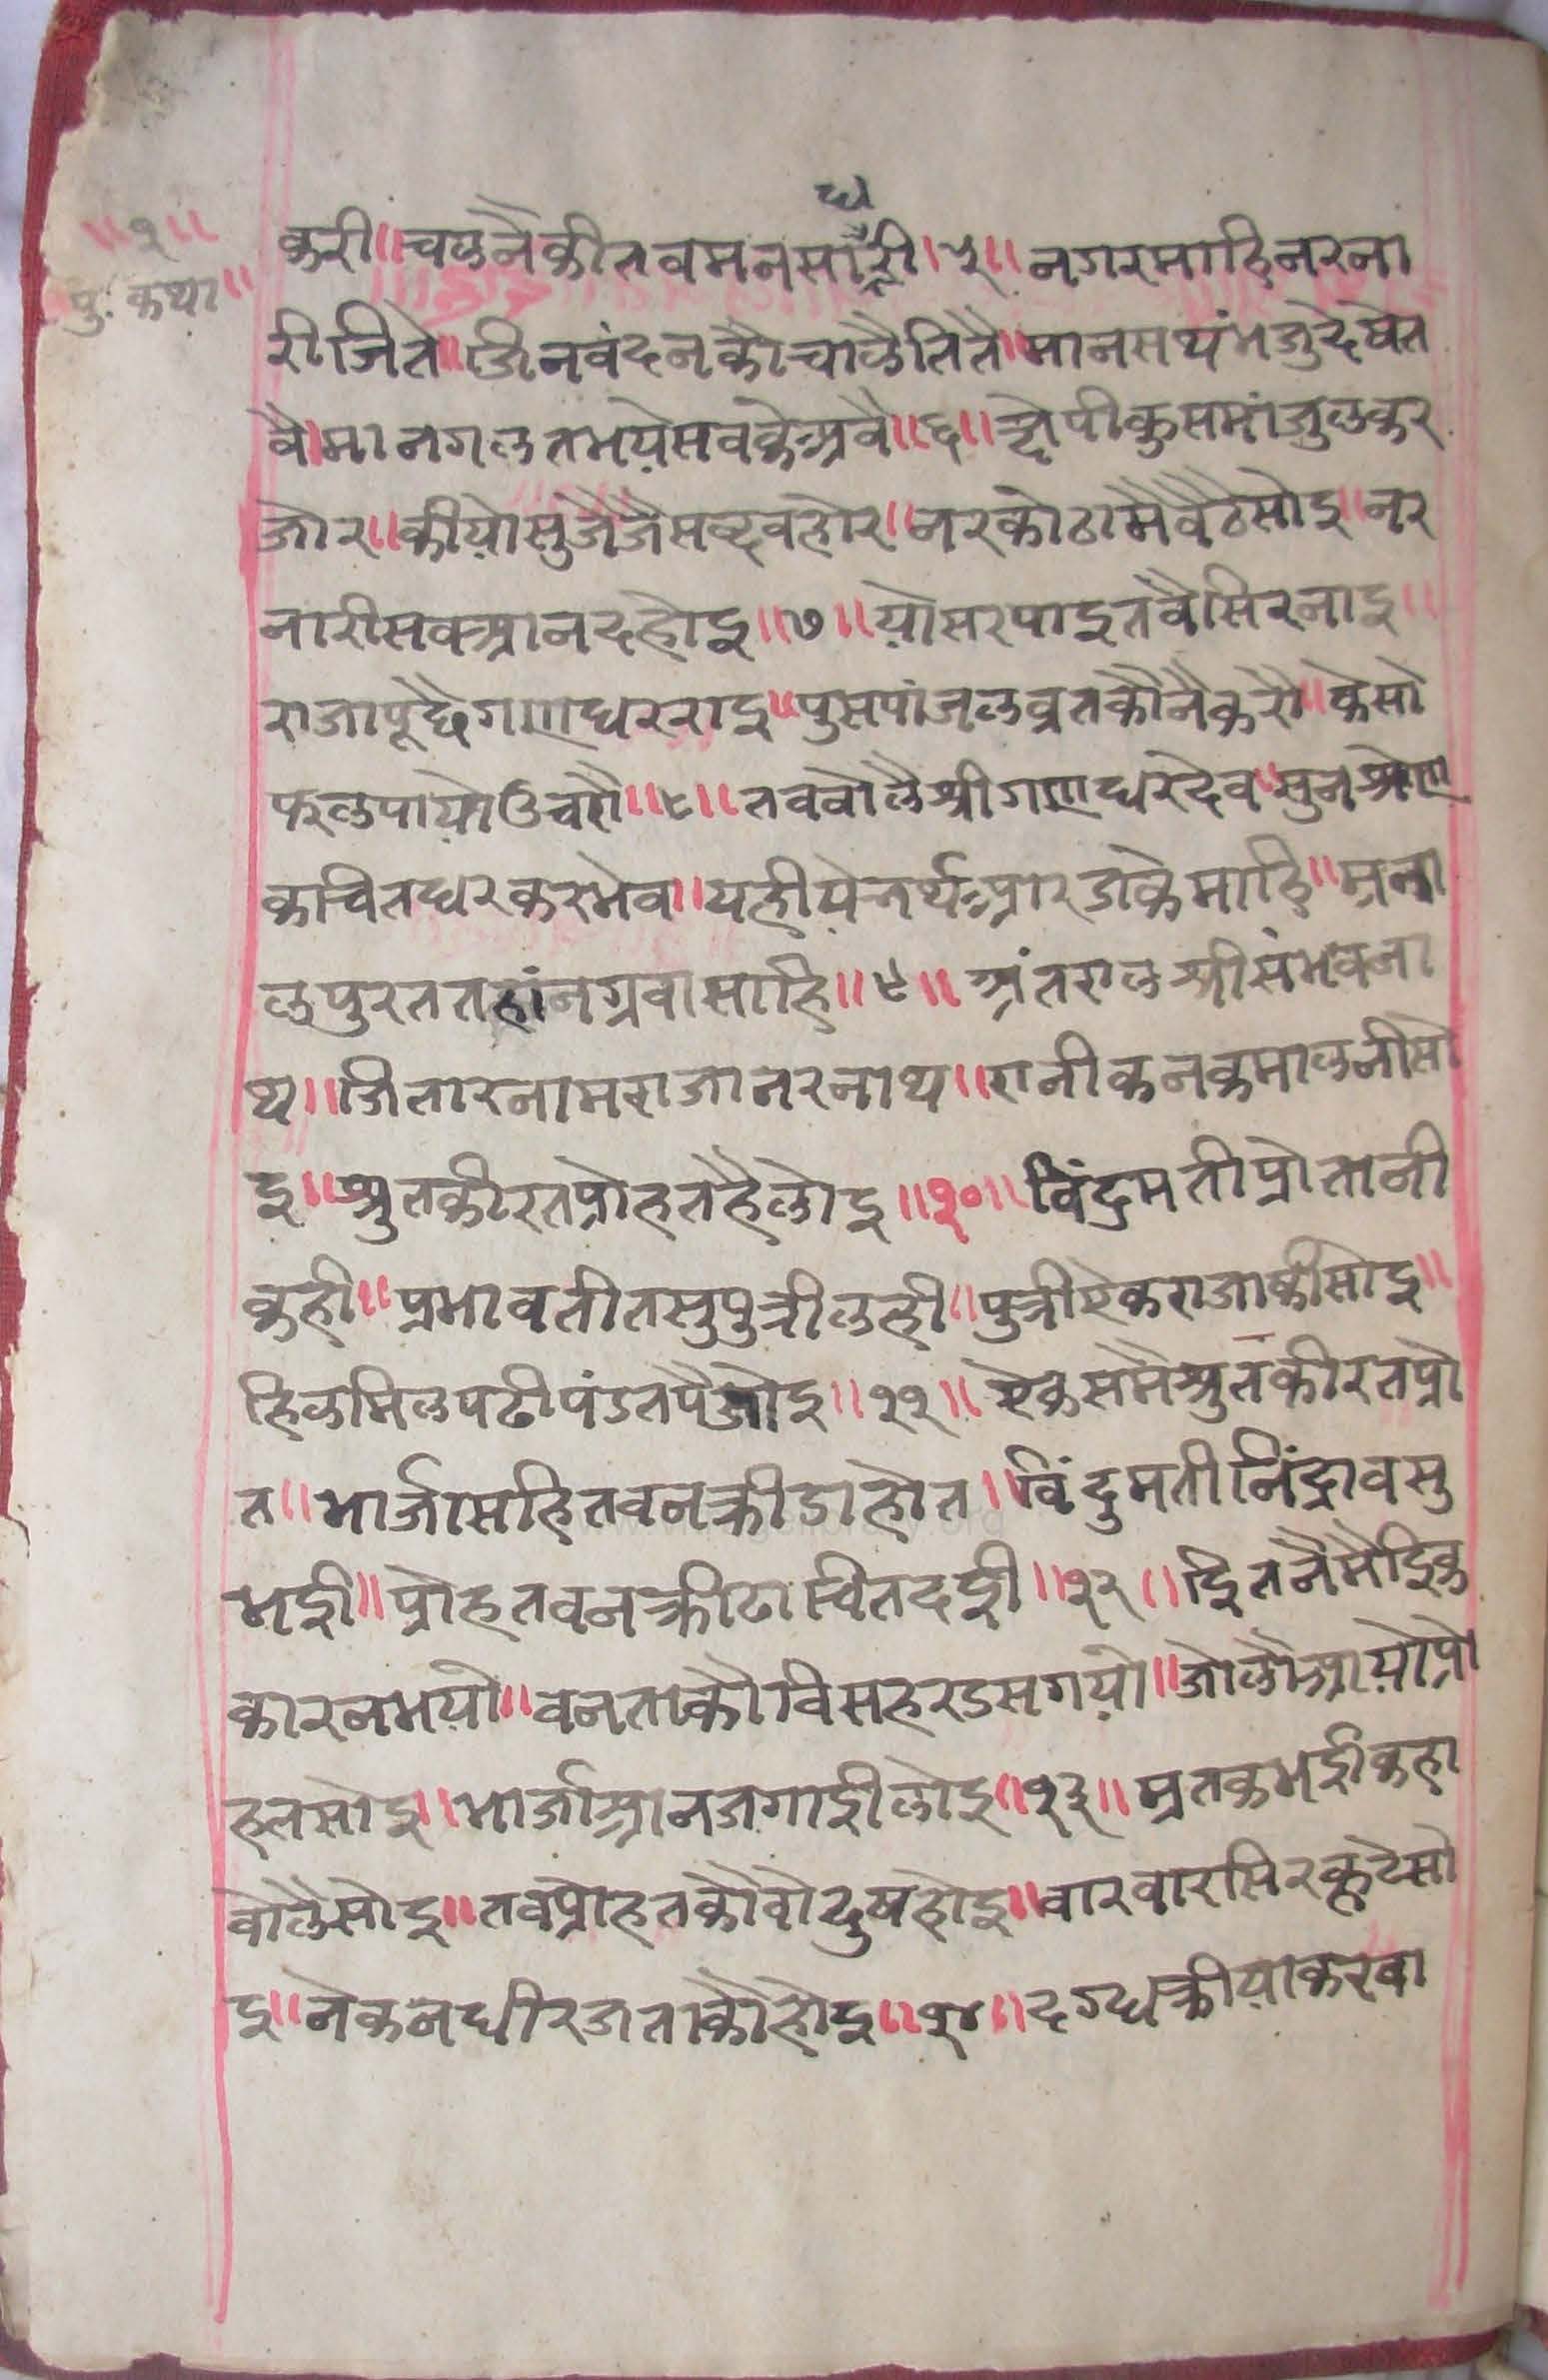 ॥१॥
पु. कथा॥
करी॥चलनैकीतवमनसाधरी॥५॥नगरमाहिनरना
रीजिते॥जिनवंदनकौचालैतितै॥मानसथंभजुदेषेत
वै॥मानगलतभयेसवकेअवै॥६॥क्षेपीकुसमांजुलकर
जोर॥कीयोसुजैजैसब्दवहोर॥नरकोठामैवैठेसोइ॥नर
नारीसवआनदहोइ॥७॥योसरपाइतवैसिरनाइ॥
राजापूछैगणधरराइ॥पुसपांजलव्रतकौनैकरौ॥केसो
फलपायोउचरौ॥८॥तववोलैश्रीगणधरदेव॥सुनश्रेण
कचितधरकरभेव॥यहीयेनर्थआरजकेमाहि॥म्रना
लपुरततहांनग्रवासाहि॥९॥अंतरालश्रीसंभवना
थ॥जितारनामराजानरनाथ॥रानीकनकमालनीसो
इ॥श्रुतकीरतप्रोहतहैलोइ॥१०॥विंद्रमतीप्रोतानी
कही॥प्रभावतीतसुपुत्रीलही॥पुत्रीऐकराजाकीसोइ॥
हिलमिलपढीपंडतपैजोइ॥११॥ऐकसमैश्रुतकीरतप्रो
त॥भार्जासहितवनक्रीडाहोत॥विंदुमतीनिंद्रावसु
भई॥प्रोहतवनक्रीढाचितदई॥१२॥इितनैमैइिक
कारनभयो॥वनताकौविसहरडसगयो॥जोलौआयोप्रो
हतसोइ॥भार्जाआनजगाईलोइ॥१३॥म्रतकभईकहा
वोलैसोइ॥तवप्रोहतकौवोदुषहोइ॥वारवारसिरकूटेसो
इ॥नेकनधीरजताकौहोइ॥१४॥दग्धक्रीयाकरवा